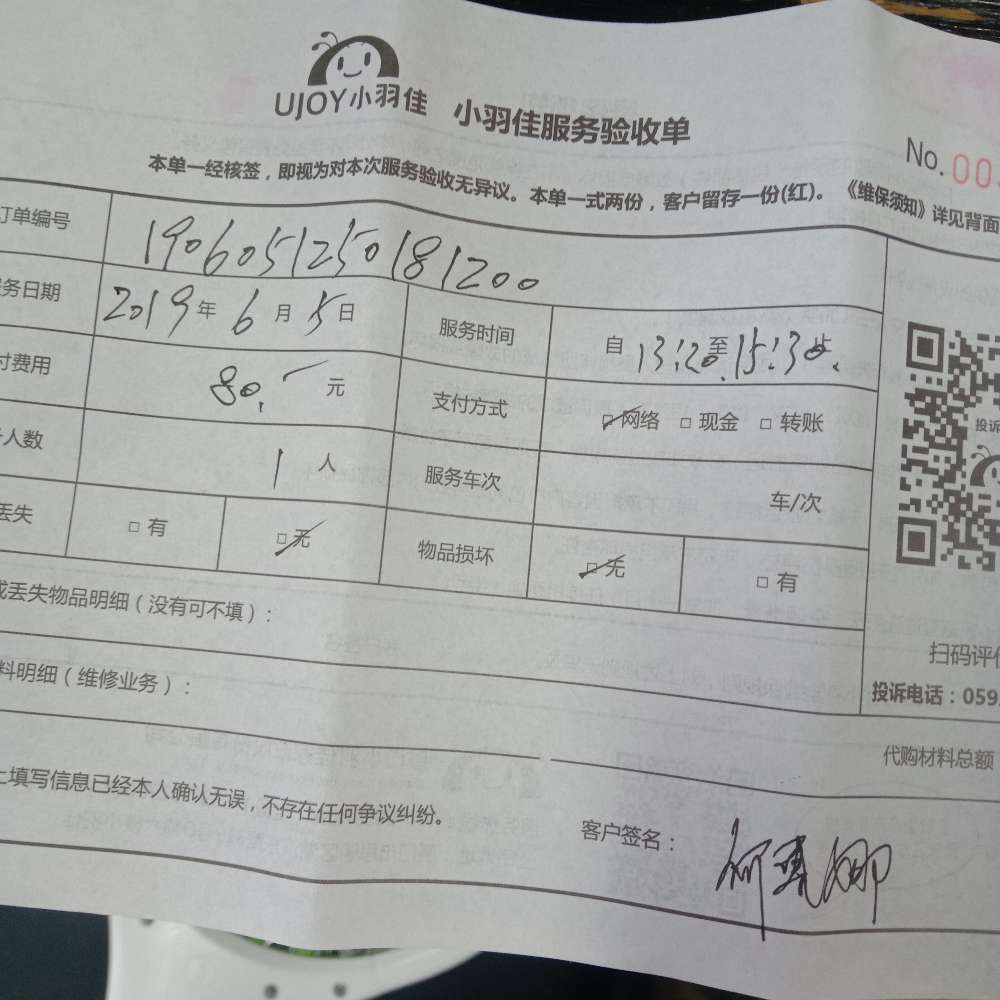 UJOY小羽佳 小羽佳服务验收单
No. 00
本单一经核签，即视为对本次服务验收无异议。本单一式两份，客户留存一份(红)。《维保须知》详见背面
订单编号 1906051250181200
务日期 2019年6月5日 服务时间 自13:20至15:30止.
付费用 80.元 支付方式 □网络 □现金 □转账
人数 1人 服务车次 车/次
丢失 □有 □无 物品损坏 □无 □有
投诉
或丢失物品明细（没有可不填）：
扫码评价
料明细（维修业务）：
投诉电话：059
代购材料总额
上填写信息已经本人确认无误，不存在任何争议纠纷。
客户签名：